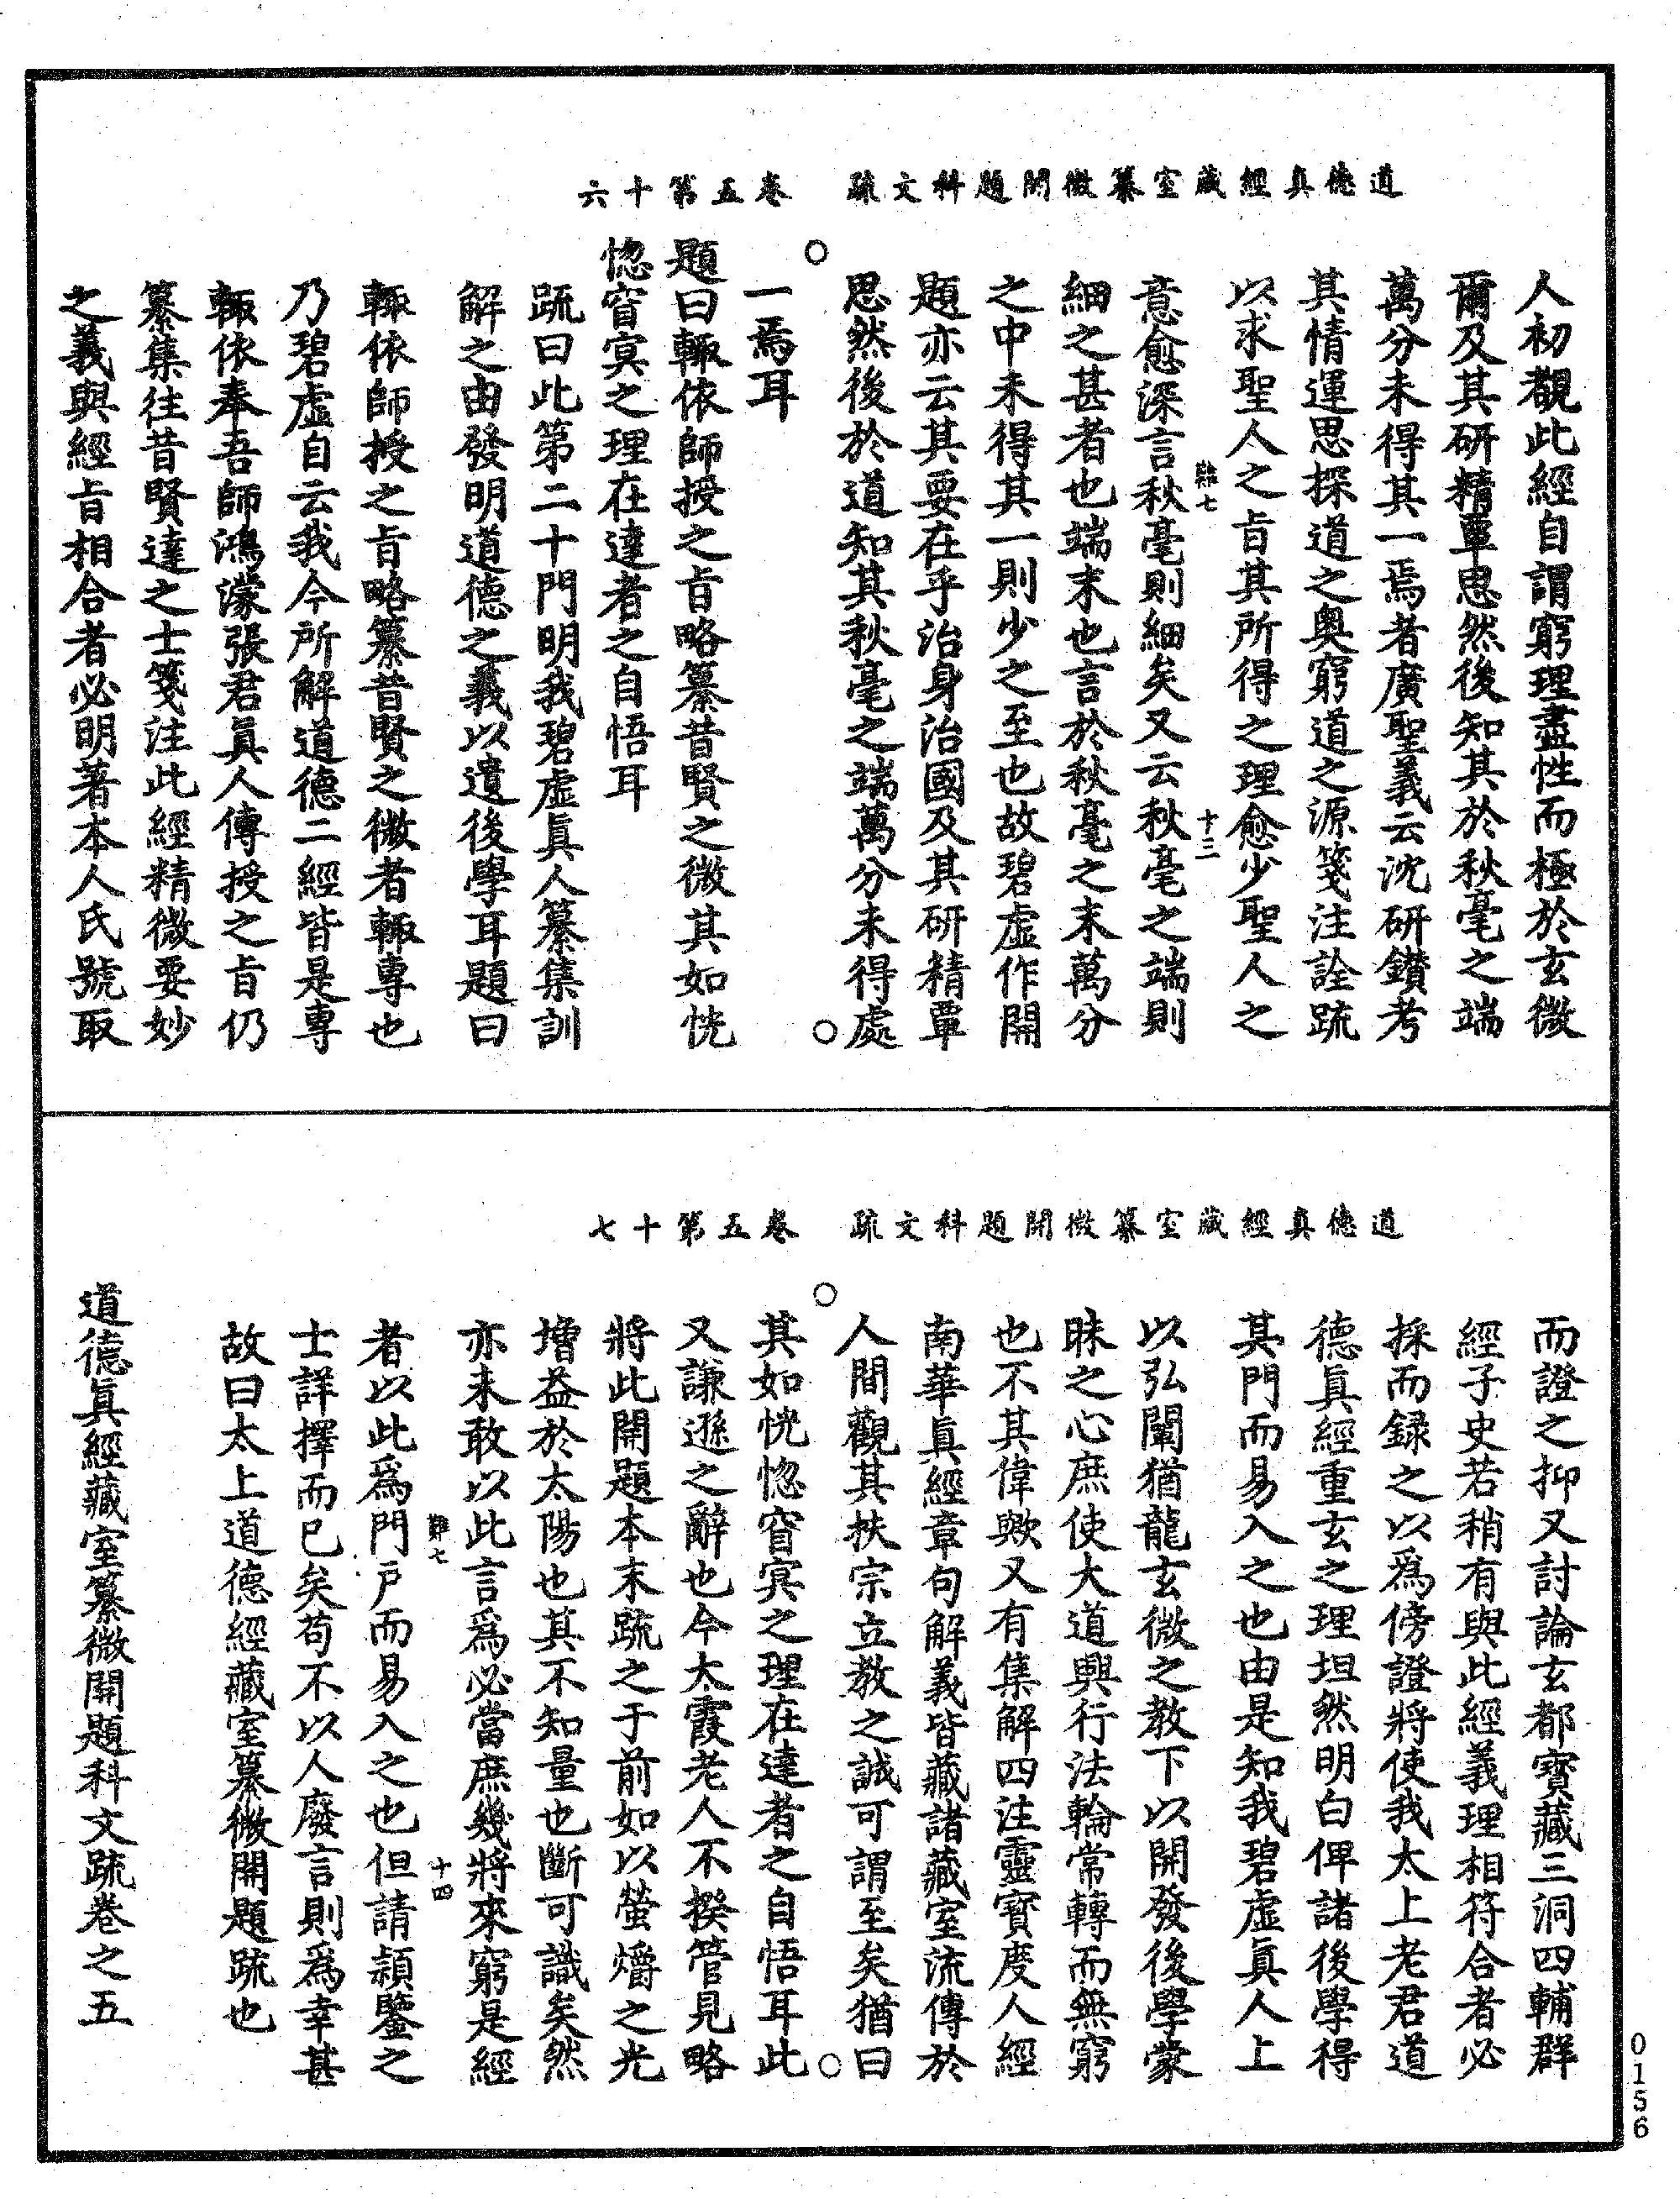 道德真經藏室纂微開題科文疏　卷五第十六
人初覩此經自謂窮理盡性而極於玄微
爾及其研精覃思然後知其於秋毫之端
萬分未得其一焉者廣聖義云沈研鑚考
其情運思探道之奧窮道之源箋注詮疏
以求聖人之旨其所得之理愈少聖人之
難七　十三
意愈深言秋毫則細矣又云秋毫之端則
細之甚者也端末也言於秋毫之末萬分
之中未得其一則少之至也故碧虛作開
題亦云其要在乎治身治國及其研精覃
思然後於道知其秋毫之端萬分未得處
一焉耳
題曰輙依師授之旨略纂昔賢之微其如恍
惚窅㝠之理在達者之自悟耳
疏曰此第二十門明我碧虛真人纂集訓
解之由發明道德之義以遺後學耳題曰
輙依師授之旨略纂昔賢之微者輙專也
乃碧虛自云我今所解道德二經皆是專
輙依奉吾師鴻濛張君真人傳授之旨仍
纂集往昔賢達之士箋注此經精微要妙
之義與經旨相合者必明著本人氏號取
道德真經藏室纂微開題科文疏　卷五第十七
而證之抑又討論玄都寶藏三洞四輔群
經子史若稍有與此經義理相符合者必
採而録之以為傍證將使我太上老君道
德真經重玄之理坦然明白俾諸後學得
其門而易入之也由是知我碧虛真人上
以弘闡猶龍玄微之教下以開發後學蒙
昧之心庶使大道興行法輪常轉而無窮
也不其偉歟又有集解四注靈寶度人經
南華真經章句解義皆藏諸藏室流傳於
人間觀其扶宗立教之誠可謂至矣猶曰
其如恍惚窅㝠之理在達者之自悟耳此
又謙遜之辭也今太霞老人不揆管見略
將此開題本末疏之于前如以螢爝之光
增益於太陽也其不知量也斷可識矣然
亦未敢以此言為必當庶幾將來窮是經
難七　十四
者以此為門戶而易入之也但請頴鑒之
士詳擇而已矣苟不以人廢言則為幸甚
故曰太上道德經藏室纂微開題疏也
道德真經藏室纂微開題科文疏卷之五
0156